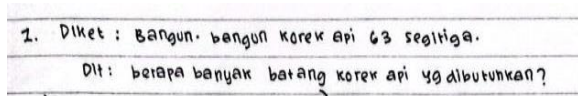 1. Diket : Bangun. bangun korek api 63 segitiga.
Dit : berapa banyak batang korek api yg dibutuhkan?